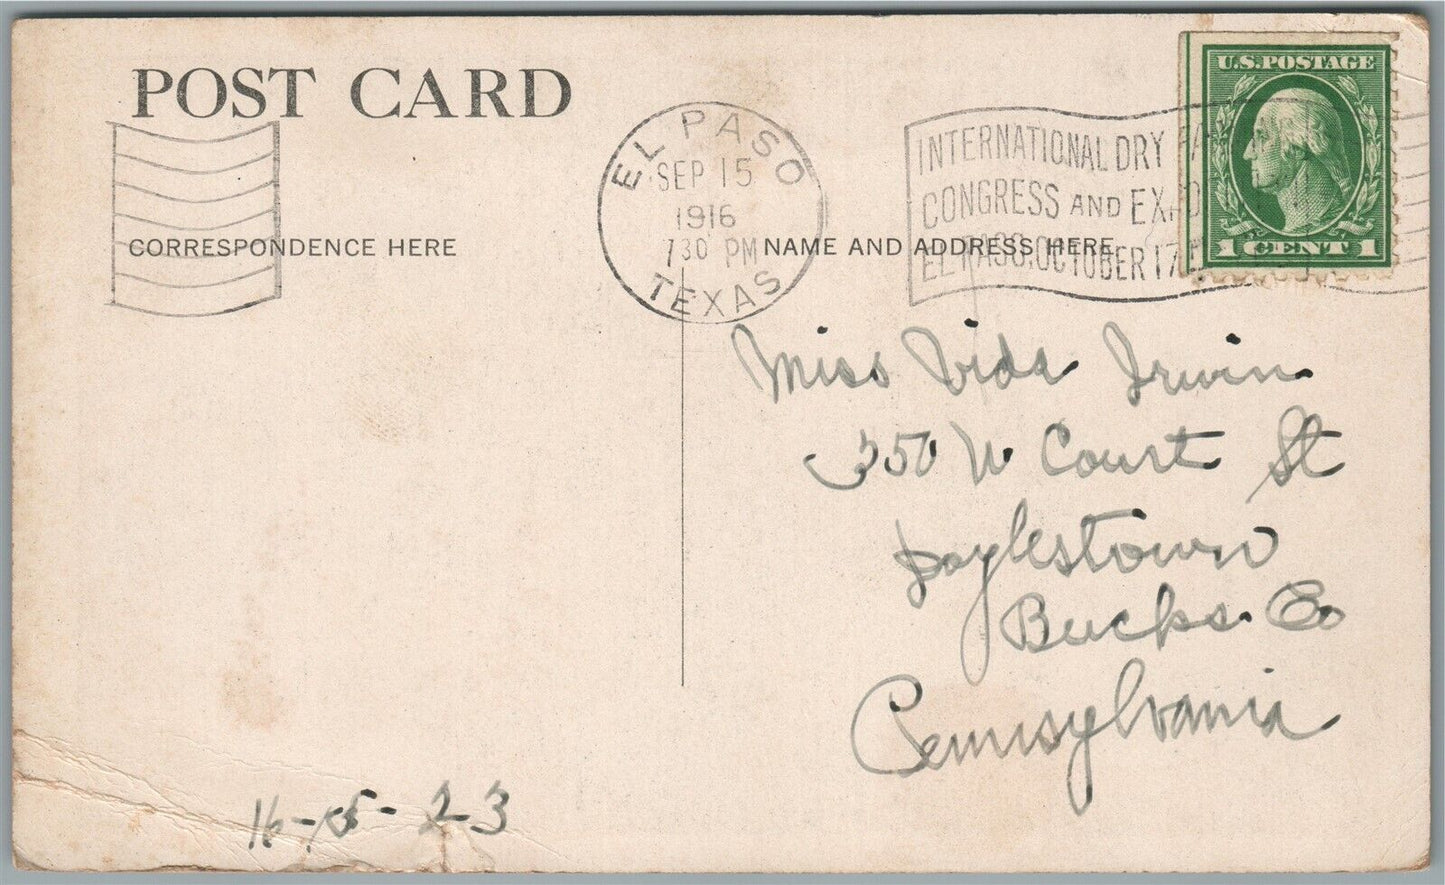 POST CARD
EL PASO
SEP 15
1916
730 PM
TEXAS
INTERNATIONAL DRY
CONGRESS AND
EL PASO. OCTOBER 17
U.S. POSTAGE
1 CENT 1
CORRESPONDENCE HERE
NAME AND ADDRESS HERE
Miss Vida Irwin
350 W Court St
Doylestown
Bucks. Co
Pennsylvania
16-15-23